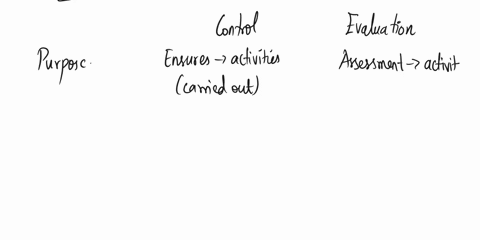 Control Evaluation
Purpose. Ensures → activities Assessment → activit
(carried out)